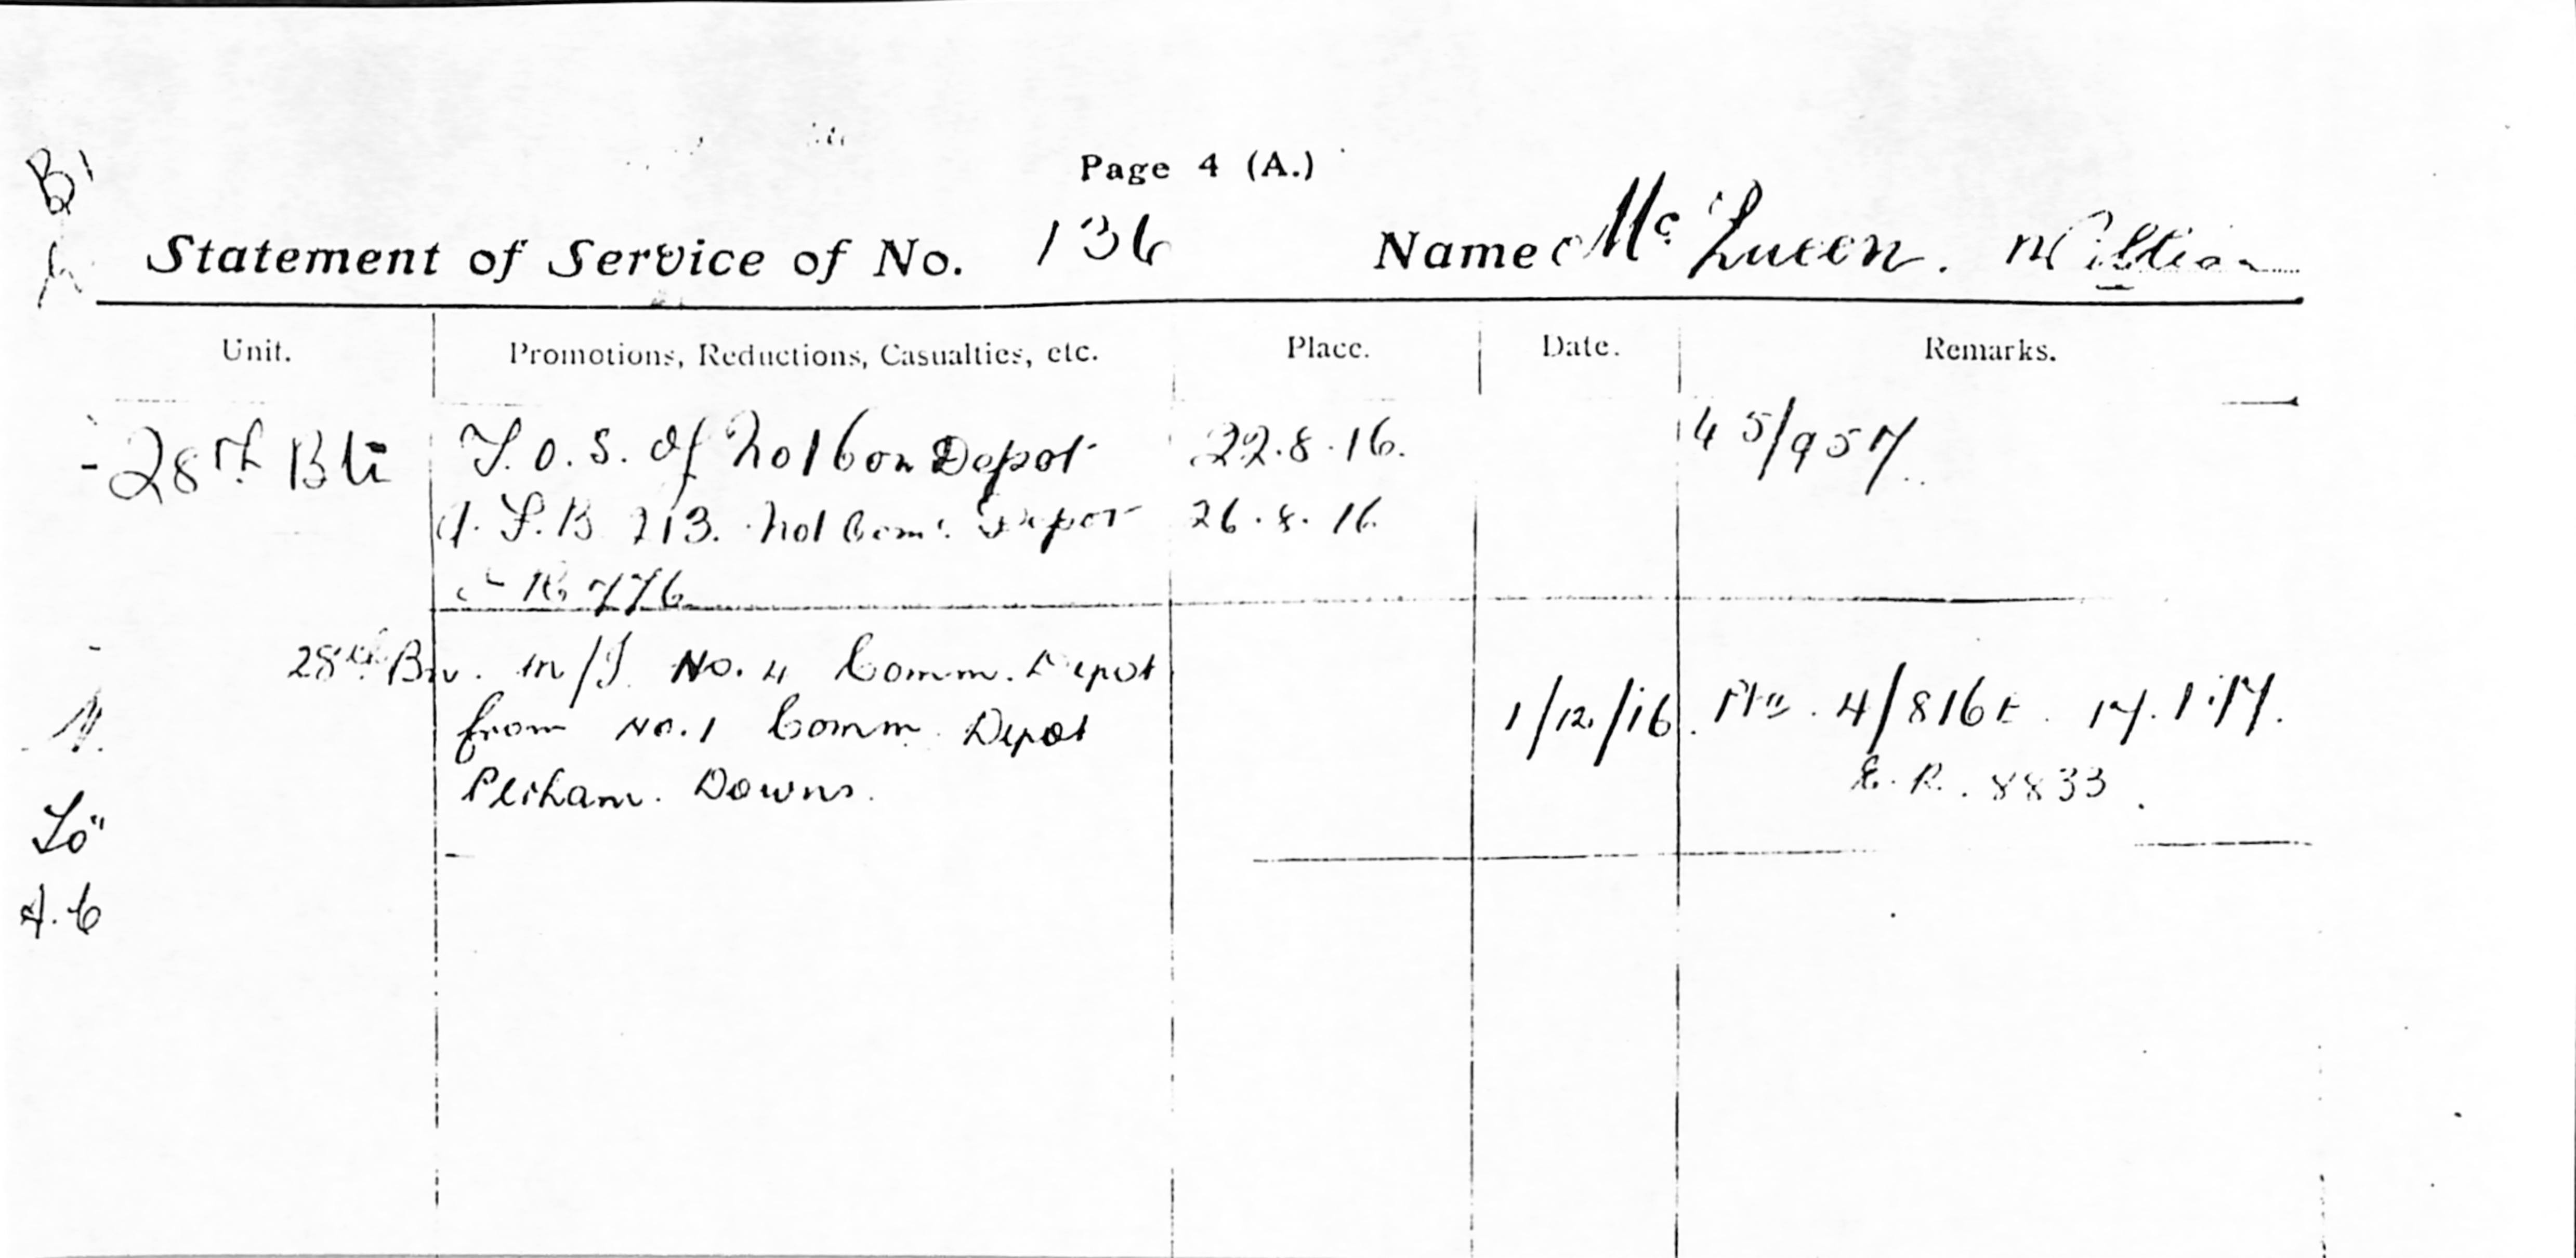 Page 4 (A.)
Statement of Service of No. 136 Name Mc Queen. William
Unit. Promotions, Reductions, Casualties, etc. Place. Date. Remarks.
28th Bn T.O.S. of No 1 Con Depot 22.8.16. 45/957
A.F.B 213. No 1 Com. Depot 26.8.16
R 776
28th Bn. M/I No. 4 Comm. Depot
from No. 1 Comm. Depot 1/12/16. 4/816E. 17.1.17.
Perham. Downs. E.R. 8833.